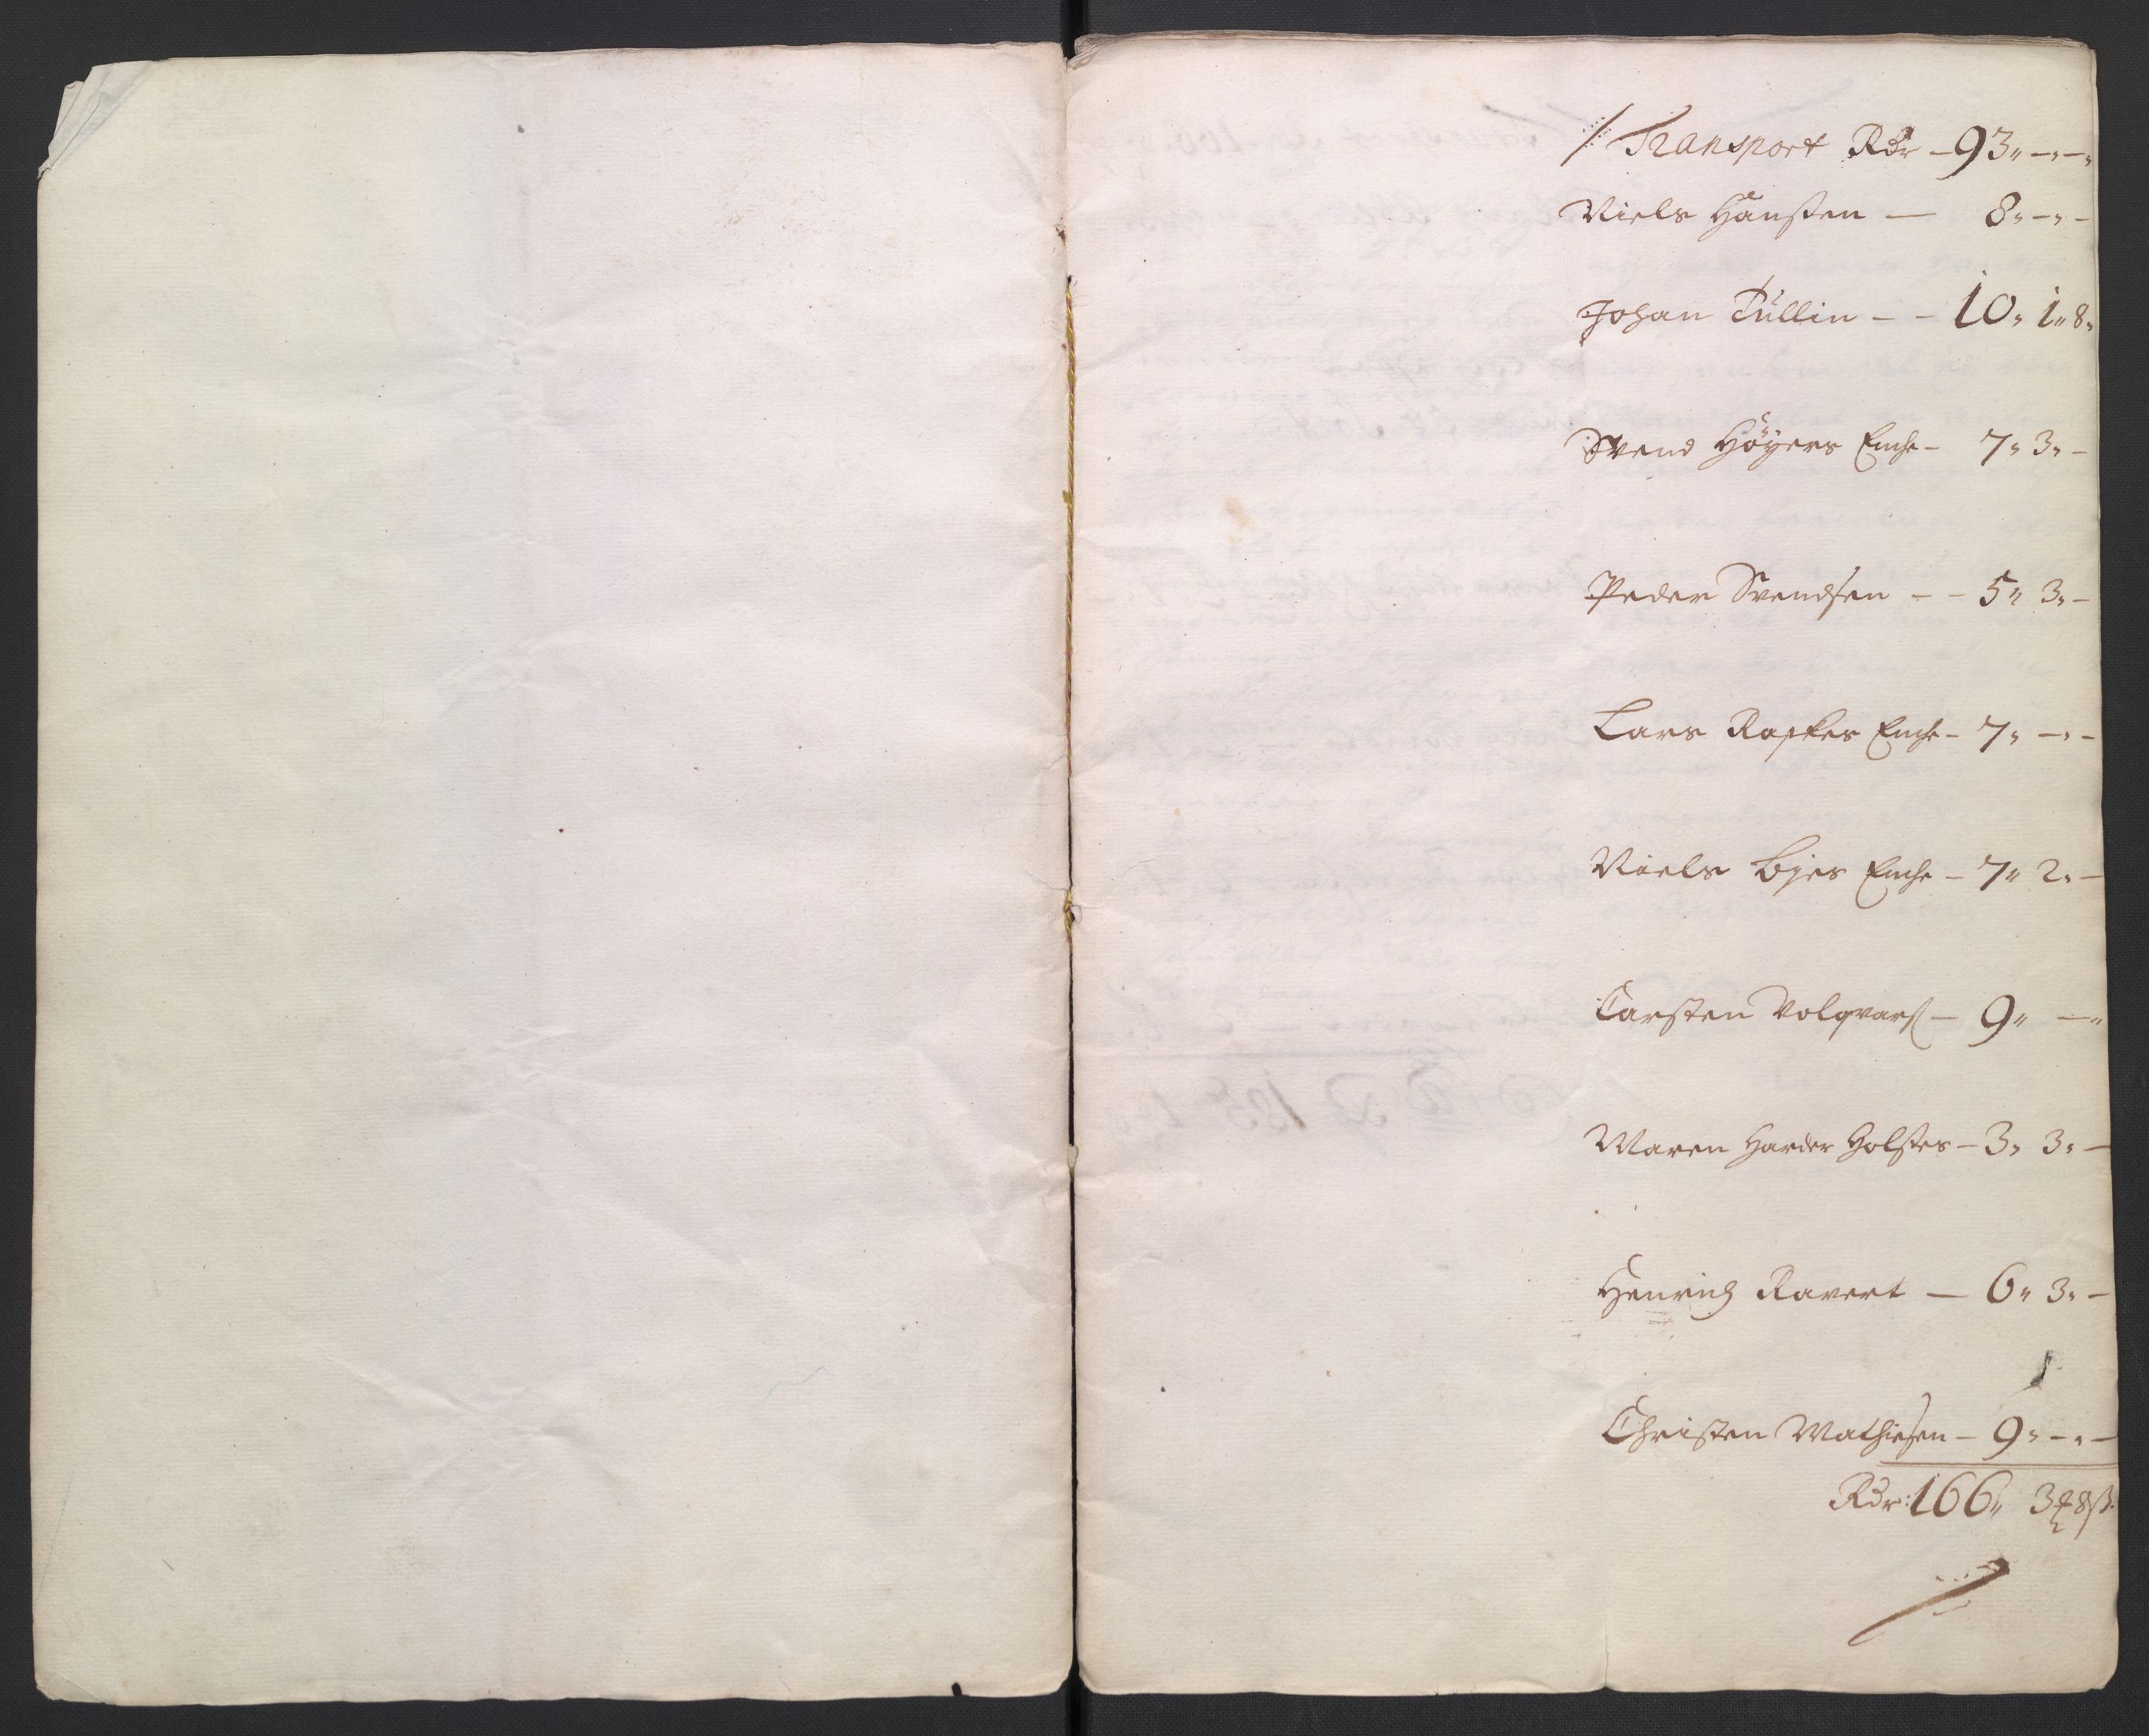 / Transport Rdr — 93 „ — „ — „
Niels Hansten — 8 „ — „ —
Johan Tullin — — 10 „ 1 „ 8 „
Svend Höyers Enche — 7 „ 3 „ —
Peder Svendsen — — 5 „ 3 „ —
Lars Rafkes Enche — 7 „ — „ —
Niels Byes Enche — 7 „ 2 „ —
Carsten Volqvars — 9 „ — „
Maren Harder Holstes — 3 „ 3 „ —
Henrich Ravert — 6 „ 3 „ —
Christen Mathiesen — 9 „ — „ —
Rdr: 166 „ 3 8 ß.